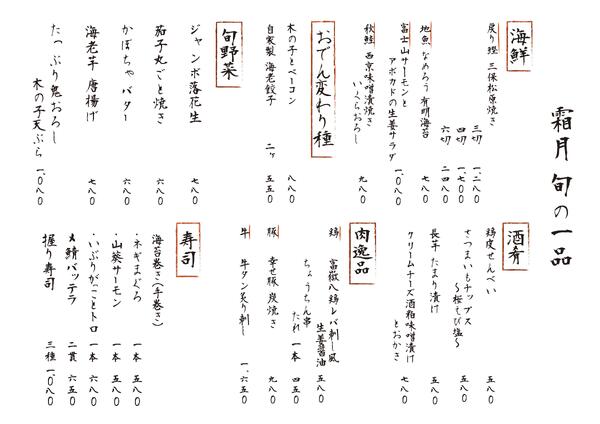 霜月 旬の一品
海鮮
戻り鰹 三保松原焼き
三切 一、二八〇
四切 一、七〇〇
六切 二四八〇
地魚 なめろう 有明海苔 七八〇
富士山サーモンと
アボカドの生姜サラダ 一、〇八〇
秋鮭 西京味噌漬焼き
いくらおろし 九八〇
おでん変わり種
木の子とベーコン 八八〇
自家製 海老餃子 二ヶ 五五〇
旬野菜
ジャンボ落花生 七八〇
茄子丸ごと焼き 六八〇
かぼちゃバター 六八〇
海老芋 唐揚げ 七八〇
たっぷり鬼おろし
木の子天ぷら 一、〇八〇
酒肴
鶏皮せんべい 五八〇
さつまいもチップス
〜桜えび塩〜 五八〇
長芋 たまり漬け 五八〇
クリームチーズ酒粕味噌漬け
とおかき 七八〇
肉逸品
鶏 富嶽八鶏レバ刺し風
生姜醤油 五八〇
ちょうちん串
たれ 一本 四五〇
豚 幸せ豚 炭焼き 九八〇
牛 牛タン炙り刺し 一、六五〇
寿司
海苔巻き(手巻き)
・ネギまぐろ 一本 五八〇
・山葵サーモン 一本 五八〇
・いぶりがっことトロ 一本 六八〇
〆鯖バッテラ 二貫 六五〇
握り寿司 三種 一、〇八〇